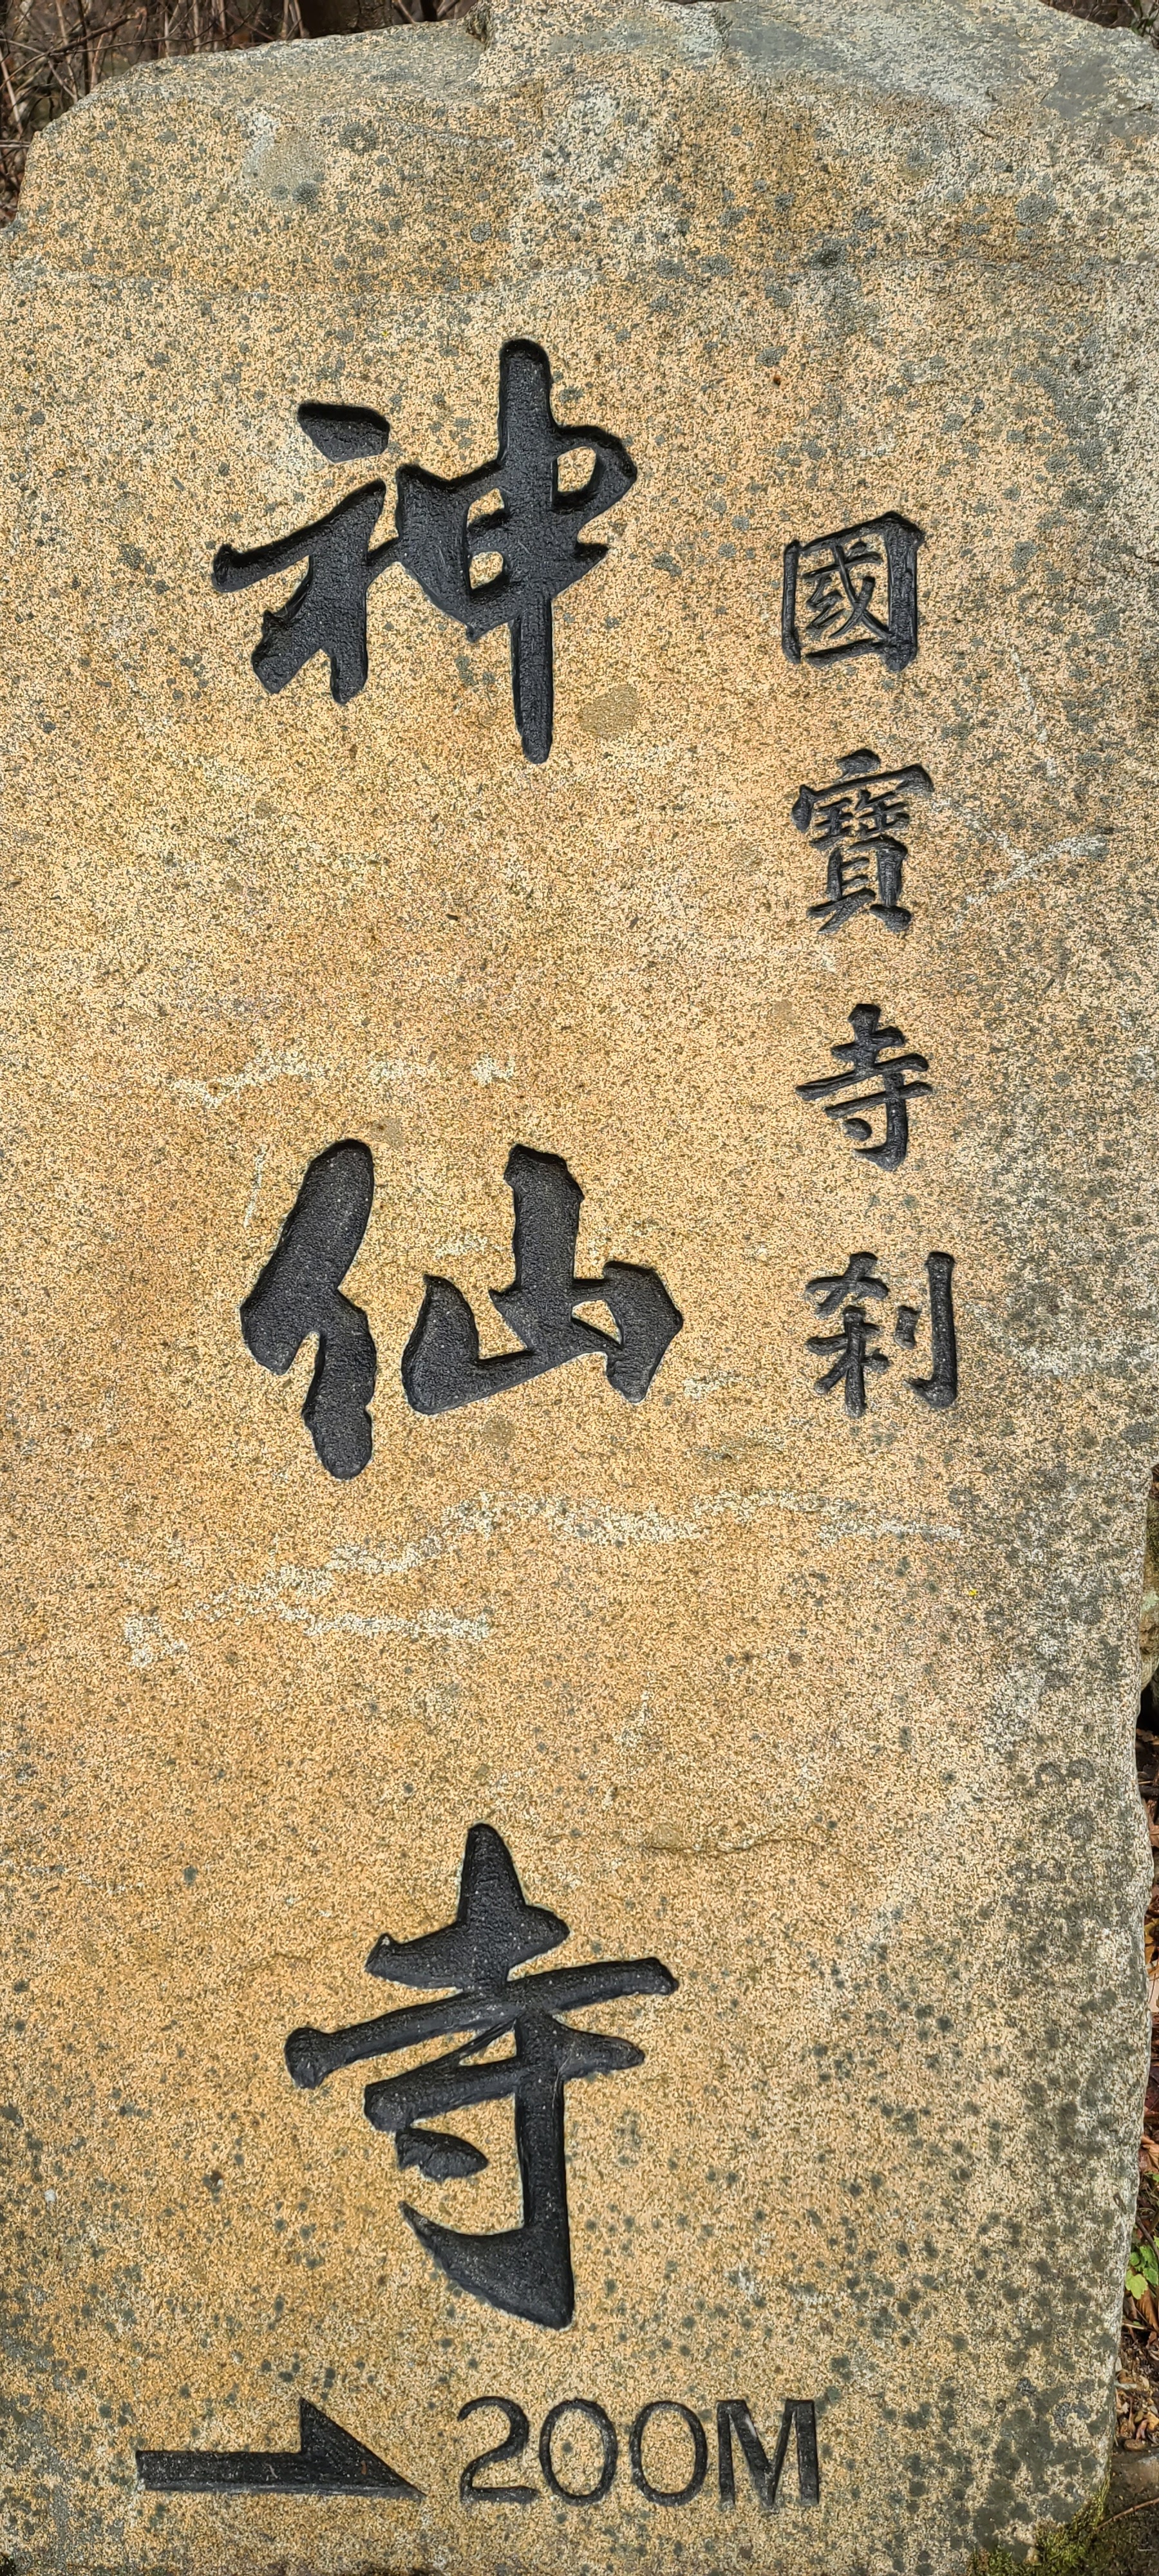 國寶寺刹
神仙寺
200M